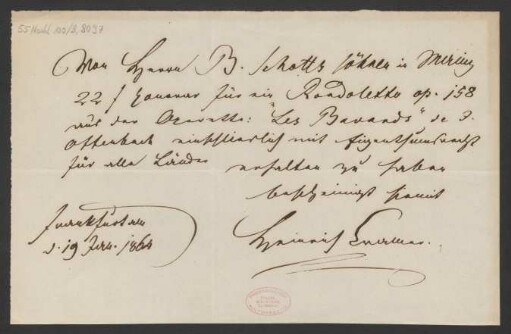 55 Nachl 102/B, 8037
Von Herrn B. Schott's Söhne in Mainz
22 f Honorar für ein Rondoletto op. 158
aus der Operette: "Les Bavards" de J.
Offenbach einschliesslich mit Eigenthumsrecht
für alle Länder erhalten zu haben
bescheinigt hiermit
Frankfurt am
d. 19 Jan. 1864
Heinrich Cramer.